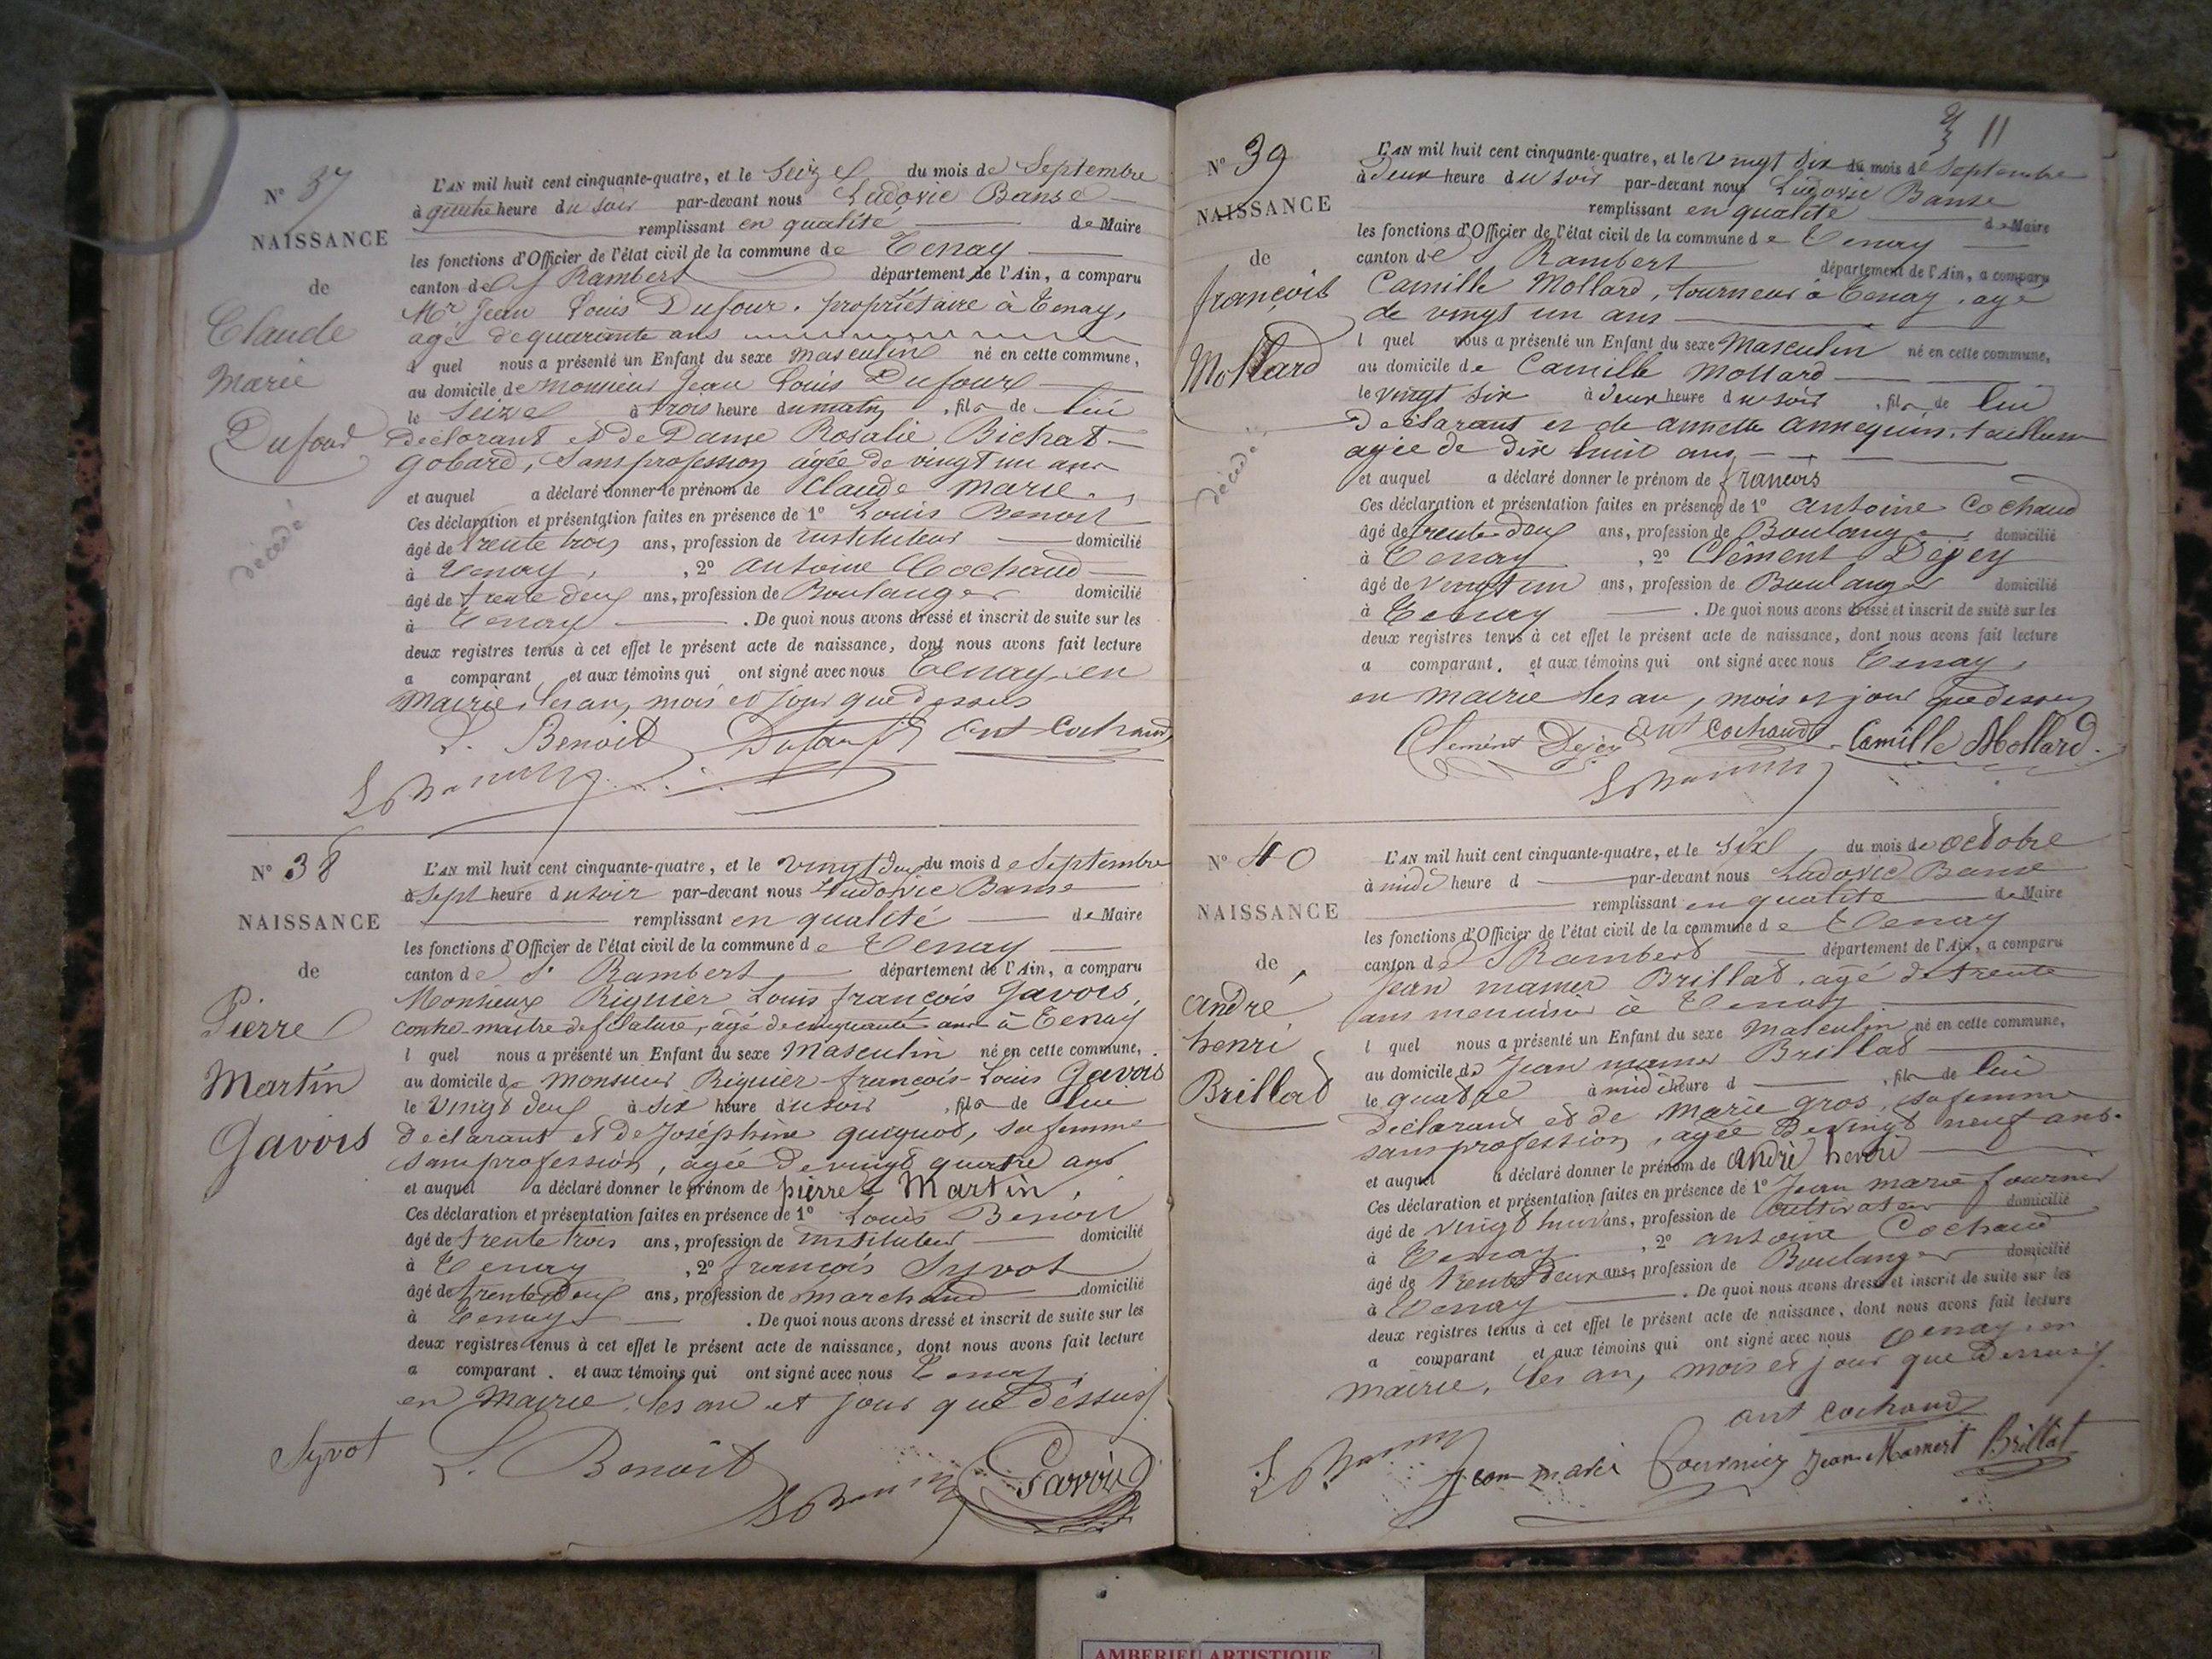 N° 37
NAISSANCE
de
Claude
Marie
Dufour
décédé
L'AN mil huit cent cinquante-quatre, et le seize du mois de Septembre
à quatre heure du soir par-devant nous Ludovic Banse
remplissant en qualité de Maire
les fonctions d'Officier de l'état civil de la commune de Tenay
canton de St Rambert département de l'Ain, a comparu
Mr Jean Louis Dufour. propriétaire à Tenay,
agé de quarante ans
l quel nous a présenté un Enfant du sexe masculin né en cette commune,
au domicile de monsieur Jean Louis Dufour
le seize à trois heure du matin, fils de lui
déclarant et de Dame Rosalie Bichat-
Gobard, sans profession âgée de vingt un ans
et auquel a déclaré donner le prénom de Claude Marie.
Ces déclaration et présentation faites en présence de 1° Louis Benoit
âgé de trente trois ans, profession de instituteur domicilié
à Tenay, , 2° Antoine Cochaud
âgé de trente deux ans, profession de Boulanger domicilié
à Tenay . De quoi nous avons dressé et inscrit de suite sur les
deux registres tenus à cet effet le présent acte de naissance, dont nous avons fait lecture
a comparant et aux témoins qui ont signé avec nous Tenay, en
Mairie, les an, mois et jour que dessus
L. Benoit Dufour ant Cochaud
N° 38
NAISSANCE
de
Pierre
Martin
Gavois
L'AN mil huit cent cinquante-quatre, et le vingt deux du mois de Septembre
à sept heure du soir par-devant nous Ludovic Banse
remplissant en qualité de Maire
les fonctions d'Officier de l'état civil de la commune de Tenay
canton de St Rambert département de l'Ain, a comparu
Monsieur Riquier Louis françois Gavois,
contre-maître de filature, âgé de cinquante ans à Tenay
l quel nous a présenté un Enfant du sexe Masculin né en cette commune,
au domicile de Monsieur Riquier-françois-Louis Gavois
le vingt deux à six heure du soir , fils de lui
déclarant et de Joséphine quiquot, sa femme
sans profession, agée de vingt quatre ans
et auquel a déclaré donner le prénom de pierre Martin,
Ces déclaration et présentation faites en présence de 1° Louis Benoit
âgé de trente trois ans, profession de instituteur domicilié
à Tenay , 2° françois Syvot
âgé de trente deux ans, profession de marchand domicilié
à Tenay . De quoi nous avons dressé et inscrit de suite sur les
deux registres tenus à cet effet le présent acte de naissance, dont nous avons fait lecture
a comparant. et aux témoins qui ont signé avec nous Tenay,
en Mairie, les an et jour que dessus
Syvot L. Benoit Gavois
11
N° 39
NAISSANCE
de
françois
Mollard
décédé
L'AN mil huit cent cinquante-quatre, et le vingt six du mois de Septembre
à deux heure du soir par-devant nous Ludovic Banse
remplissant en qualité de Maire
les fonctions d'Officier de l'état civil de la commune de Tenay
canton de St Rambert département de l'Ain, a comparu
Camille Mollard, tourneur à Tenay, agé
de vingt un ans
l quel nous a présenté un Enfant du sexe Masculin né en cette commune,
au domicile de Camille Mollard
le vingt six à deux heure du soir , fils de lui
Déclarant et de annette annequin, tailleuse
agée de dix huit ans
et auquel a déclaré donner le prénom de françois
Ces déclaration et présentation faites en présence de 1° Antoine Cochaud
âgé de trente deux ans, profession de Boulanger domicilié
à Tenay , 2° Clément Dejey
âgé de vingt un ans, profession de Boulanger domicilié
à Tenay . De quoi nous avons dressé et inscrit de suite sur les
deux registres tenus à cet effet le présent acte de naissance, dont nous avons fait lecture
a comparant. et aux témoins qui ont signé avec nous Tenay,
en mairie les an, mois et jour que dessus
Clement Dejey ant Cochaud Camille Mollard
N° 40
NAISSANCE
de
André
henri
Brillat
L'AN mil huit cent cinquante-quatre, et le six du mois de octobre
à midi heure d par-devant nous Ludovic Banse
remplissant en qualité de Maire
les fonctions d'Officier de l'état civil de la commune de Tenay
canton de St Rambert département de l'Ain, a comparu
Jean mamer Brillat, agé de trente
ans menuisier à Tenay
l quel nous a présenté un Enfant du sexe Masculin né en cette commune,
au domicile de Jean mamer Brillat
le quatre à midi heure d , fils de lui
Déclarant et de Marie gros, sa femme
sans profession, agée de vingt neuf ans.
et auquel a déclaré donner le prénom de André henri
Ces déclaration et présentation faites en présence de 1° Jean marie fournier
âgé de vingt huit ans, profession de cultivateur domicilié
à Tenay , 2° antoine Cochaud
âgé de trente deux ans, profession de Boulanger domicilié
à Tenay . De quoi nous avons dressé et inscrit de suite sur les
deux registres tenus à cet effet le présent acte de naissance, dont nous avons fait lecture
a comparant et aux témoins qui ont signé avec nous Tenay, en
mairie, les an, mois et jour que dessus
ant Cochaud
Jean marie fournier Jean Mamert Brillat
AMBERIEU ARTISTIQUE